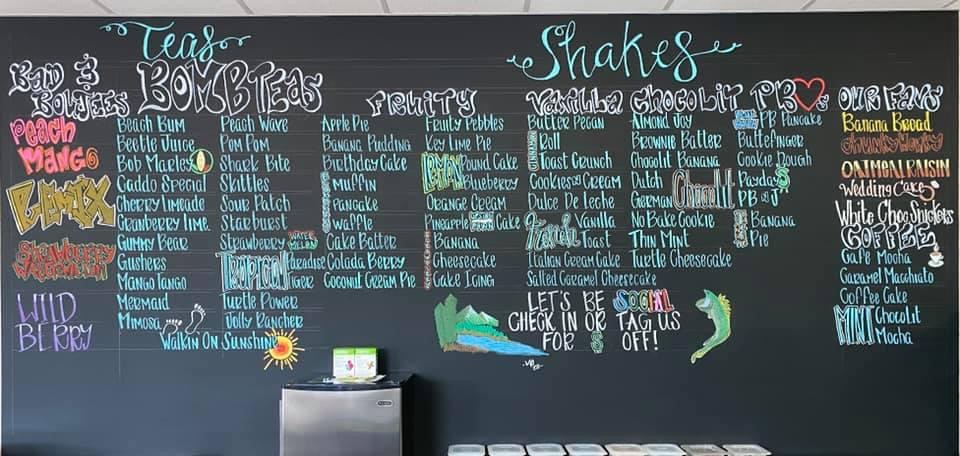 Teas
Shakes
BAD &
BOUJEES
BOMBTEAS
FRUITY
Vanilla
CHOCOLIT
PB
OUR FAVS
PEACH
MANGO
REMIX
STRAWBERRY
WATERMELON
WILD
BERRY
BEACH BUM
BEETLE JUICE
BOB MARLEY
CADDO SPECIAL
CHERRY LIMEADE
CRANBERRY LIME
GUMMY BEAR
GUSHERS
MANGO TANGO
MERMAID
MIMOSA
PEACH WAVE
POM POM
SHARK BITE
SKITTLES
SOUR PATCH
STARBURST
STRAWBERRY WATERMELON
TROPICAL PARADISE
TIGER
TURTLE POWER
JOLLY RANCHER
WALKIN ON SUNSHINE
APPLE PIE
BANANA PUDDING
BIRTHDAY CAKE
MUFFIN
PANCAKE
WAFFLE
CAKE BATTER
COLADA BERRY
COCONUT CREAM PIE
FRUITY PEBBLES
KEY LIME PIE
LEMON POUND CAKE
BLUEBERRY
ORANGE CREAM
PINEAPPLE CAKE
BANANA
CHEESECAKE
CAKE ICING
BUTTER PECAN
CINNAMON ROLL
TOAST CRUNCH
COOKIES N CREAM
DULCE DE LECHE
FRENCH VANILLA
TOAST
ITALIAN CREAM CAKE
SALTED CARAMEL CHEESECAKE
ALMOND JOY
BROWNIE BATTER
CHOCOLIT BANANA
DUTCH CHOCOLIT
GERMAN
NO BAKE COOKIE
THIN MINT
TURTLE CHEESECAKE
PB PANCAKE
BUTTERFINGER
COOKIE DOUGH
PAYDAY $
PB & J
BANANA
PIE
BANANA BREAD
CHUNKY MONKEY
OATMEAL RAISIN
WEDDING CAKE
WHITE CHOC SNICKERS
COFFEE
CAFE MOCHA
CARAMEL MACCHIATO
COFFEE CAKE
MINT CHOCOLIT
MOCHA
LET'S BE SOCIAL
CHECK IN OR TAG US
FOR $ OFF!